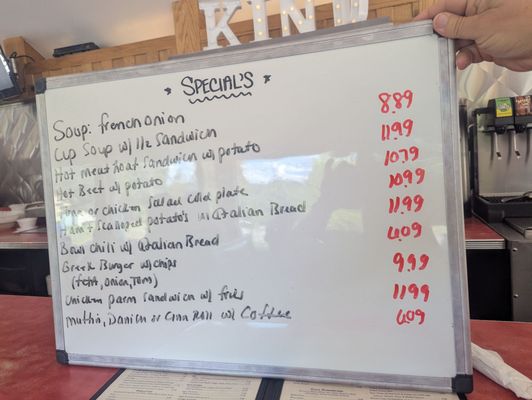 KIND
* SPECIAL'S *
Soup: french onion
Cup Soup w/ 1/2 Sandwich 8.89
Hot meat loaf Sandwich w/ potato 11.99
Hot Beef w/ potato 10.79
Tuna or chicken Salad cold plate 10.99
Ham & Scalloped potato's w/ atalian Bread 11.99
Bowl chili w/ atalian Bread 6.09
Greek Burger w/ chips 9.99
(feta, onion, Tom)
Chicken parm Sandwich w/ fries 11.99
muffin, Danish or Cinn Roll w/ Coffee 6.09